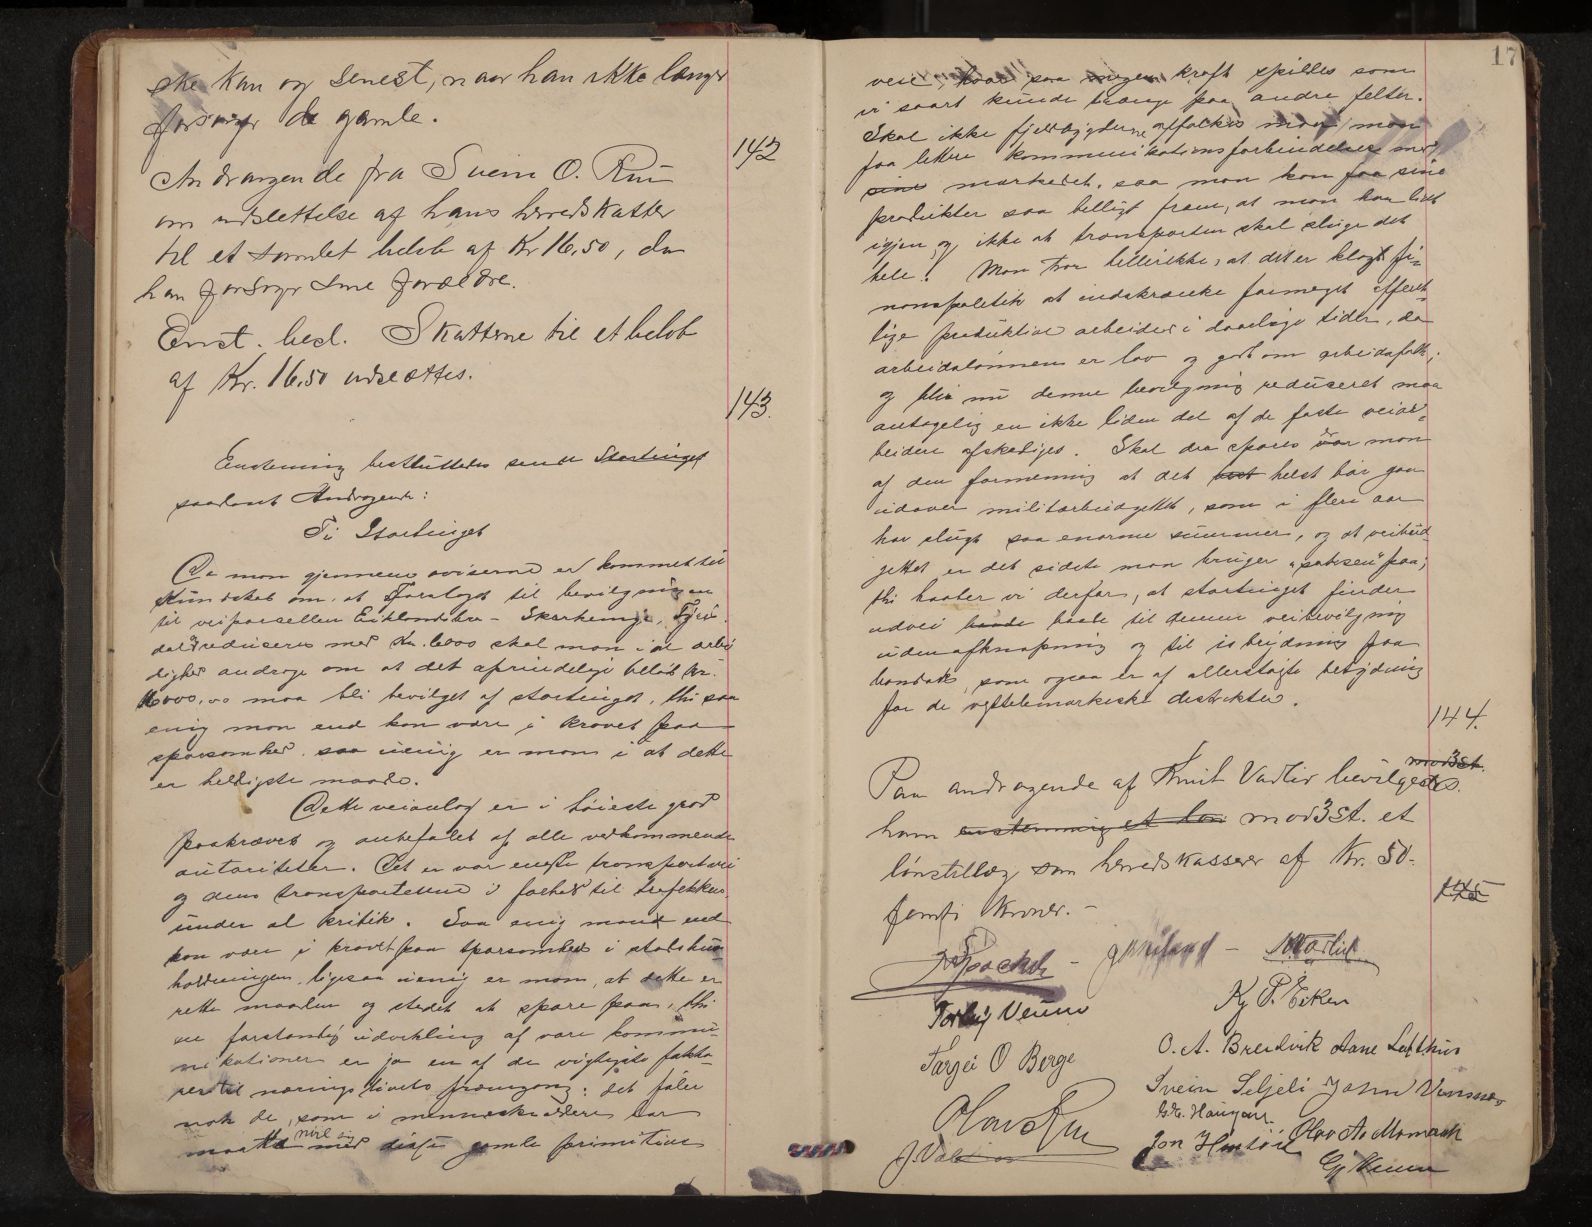 ske kan og senest, naar han ikke længer
forsørger de gamle.
142
Andragende fra Svein O. Rui
om udslettelse af hans herredskatter
til et samlet beløb af Kr 16,50, da
han forsørger sine forældre.
Enst. besl. Skatterne til et beløb
af Kr. 16.50 udslættes.
143.
Enstemmig besluttedes sendt Stortinget
saadant Andragende:
Til Stortinget
Da man gjennem aviserne er kommet til
kundskab om, at Forslaget til bevilgningen
til veiparsellen Eiklandsbro –
dal reduceres med kr. 6000 skal man i al ærbø
dighed andrage om at det oprindelige beløb kr.
16000,00 maa bli bevilget af stortinget, thi saa
enig man end kan være i kravet paa
sparsomhed, saa uenig er man i at dette
er heldigste maade.
Dette veianlæg er i høieste grad
paakrævet og anbefalet af alle vedkommende
autoriteter. Det er vor eneste transportvei
og dens transportevne i forhold til trafikken
under al kritik. Saa enig man end
kan være i kravet paa sparsomhed i statshus
holdningen, ligesaa uenig er man, at dette er
rette maaden og stedet at spare paa, thi
en forstandig udvikling af vore kommu-
nikationer er jo en af de vigtigste fakto-
rer til næringslivets fremgang; det føler
nok de, som i menneskealdere har
maatte nøie sig med disse gamle primitive
17
veie, hvor saa megen kraft spilles som
vi saart kunde trænge paa andre felter.
Skal ikke fjeldbygderne affolkes maa man
faa lettere kommunikationsforbindelser med
sine markedet, saa man kan faa sine
produkter saa billigt frem, at man har lidt
igjen og ikke at transporten skal sluge det
hele. Man tror heller ikke, at det er klogt fi-
nanspolitik at indskrænke formeget offent-
lige produktive arbeider i daarlige tider, da
arbeidslønnen er lav og godt om arbeidsfolk;
og blir nu denne bevilgning reduceret maa
antagelig en ikke liden del af de faste veiar-
beidere afskediges. Skal der spares er man
af den formening at det helst bør gaa
udover militærbudgettet, som i flere aar
har slugt saa enorme summer, og at veibud-
gettet er det sidste man bruger „saksen“ paa;
thi haaber vi derfor, at stortinget finder
udvei baade til denne veibevilgning
uden afknapning og til isbrydning paa
Bandak, som ogsaa er af allerstørste betydning
for de vesttelemarkiske distrikter.
144.
Paa andragende af Knut Vadlid bevilgedes
mod 3 st.
ham enstemmig et løn mod 3 st. et
lønstillæg som herredskasserer af Kr. 50-
femti Kroner. –
145
Torleif Veum
Kg P. Eiken
Tarjei O Berge
O. A. Breidvik
Svein Seljeli
John Vinsnes
G.K. Haugen
Olav Rui
Jon Hustöil
Olav Aa Momrak